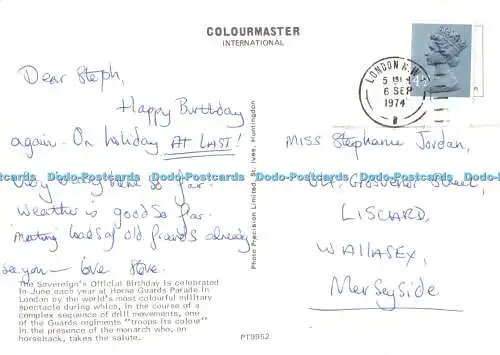 COLOURMASTER
INTERNATIONAL
Dear Steph,
Happy Birthday
again. On holiday AT LAST!
Very here so far.
Weather is good so far.
Meeting loads of old friends already
see you — love Steve.
The Sovereign's Official Birthday is celebrated
in June each year at Horse Guards Parade in
London by the world's most colourful military
spectacle during which, in the course of a
complex sequence of drill movements, one
of the Guards regiments "troops its colour"
in the presence of the monarch who, on
horseback, takes the salute.
PT9952
Photo Precision Limited, St. Ives, Huntingdon
LONDON N.W.
6 SEP
1974
Miss Stephanie Jordan,
Grosvenor Street,
LISCARD,
WALLASEY,
Merseyside
Dodo-Postcards Dodo-Postcards Dodo-Postcards Dodo-Postcards Dodo-Postcards